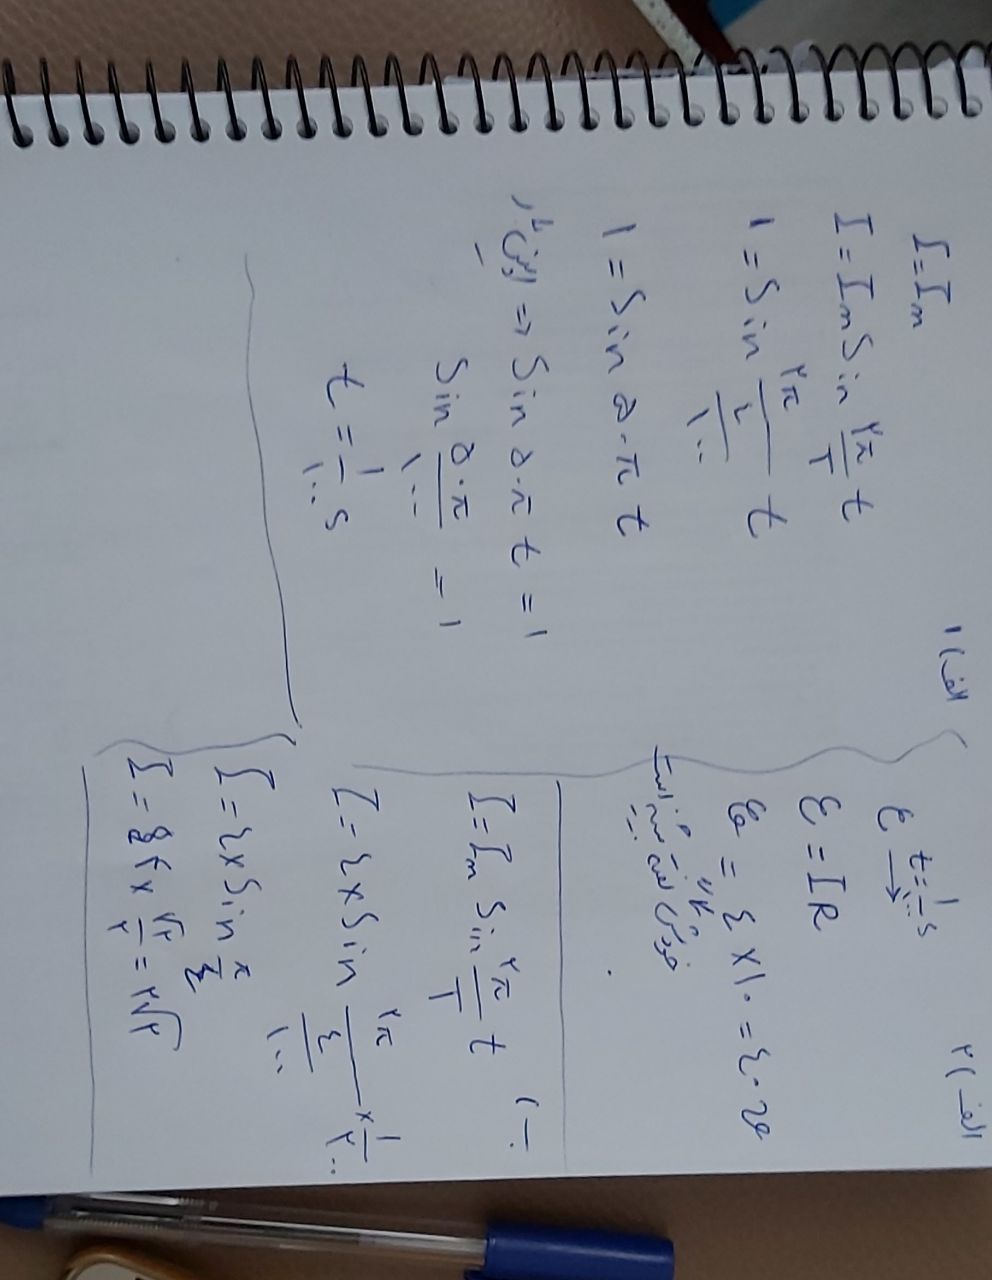 الف) ۱
I = Im
I = Im Sin ۲π/T t
۱ = Sin ۲π/(۴/۱۰۰) t
۱ = Sin ۵۰π t
=> Sin ۵۰π t = ۱
Sin ۵۰π/۱۰۰ = ۱
t = ۱/۱۰۰ s
الف) ۲
ε t = ۱/۱۰۰ s →
ε = IR
ε = ٤ × ۱۰ = ٤۰ v
خودش گفته
ب)
I = Im Sin ۲π/T t
I = ٤ × Sin ۲π/(٤/۱۰۰) × ۱/۲۰۰
I = ٤ × Sin π/٤
I = ۴ × √۲/۲ = ۲√۲